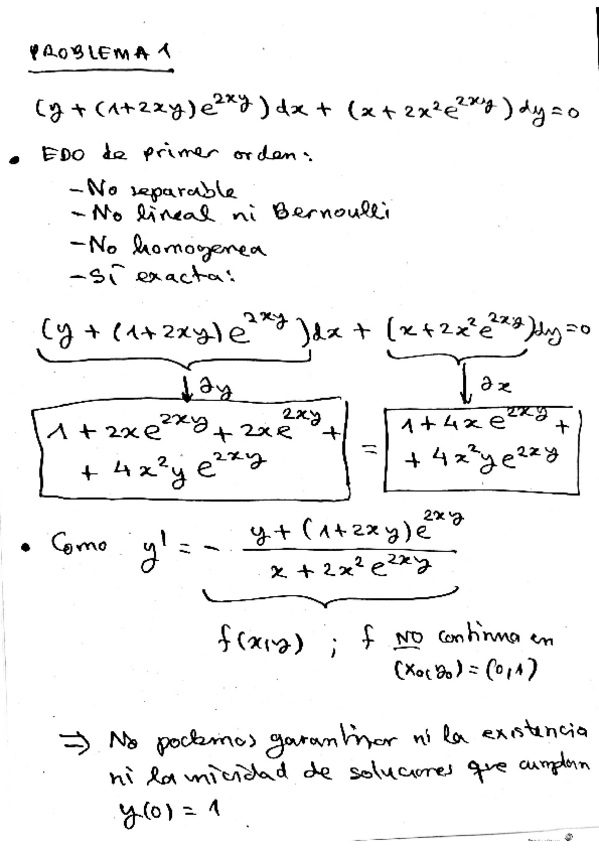 PROBLEMA 1
(y + (1+2xy)e^{2xy}) dx + (x + 2x²e^{2xy}) dy = 0
• EDO de primer orden:
- No separable
- No lineal ni Bernoulli
- No homogenea
- Sí exacta:
(y + (1+2xy)e^{2xy}) dx + (x + 2x²e^{2xy}) dy = 0
↓ ∂y ↓ ∂x
1 + 2xe^{2xy} + 2xe^{2xy} + = 1 + 4xe^{2xy} +
+ 4x²y e^{2xy} + 4x²ye^{2xy}
• Como y' = - \frac{y + (1+2xy)e^{2xy}}{x + 2x²e^{2xy}}
f(x,y) ; f NO continua en
(x₀,y₀) = (0,1)
⇒ No podemos garantizar ni la existencia
ni la unicidad de soluciones que cumplan
y(0) = 1